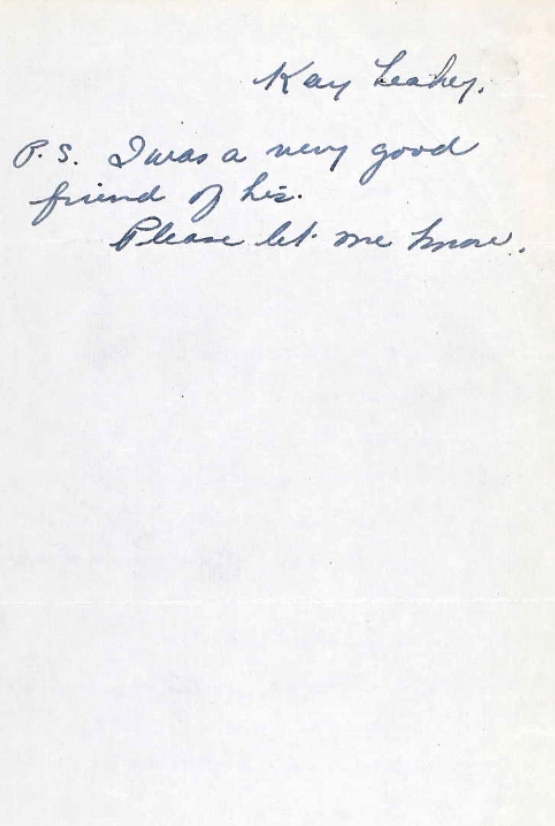 Kay Leahey.
P.S. I was a very good
friend of his.
Please let me know.